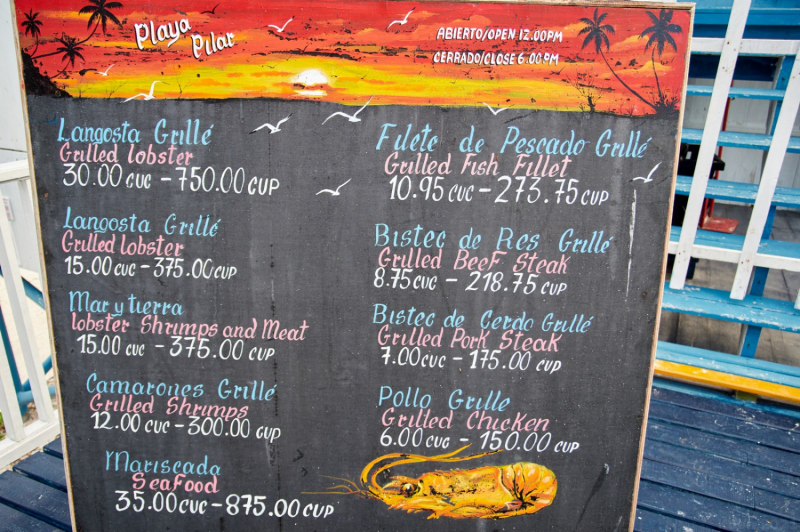 Playa
Pilar
ABIERTO/OPEN 12.00PM
CERRADO/CLOSE 6.00PM
Langosta Grillé
Grilled lobster
30.00 CUC - 750.00 CUP
Langosta Grillé
Grilled lobster
15.00 CUC - 375.00 CUP
Mar y tierra
lobster Shrimps and Meat
15.00 CUC - 375.00 CUP
Camarones Grillé
Grilled Shrimps
12.00 CUC - 300.00 CUP
Mariscada
Seafood
35.00 CUC - 875.00 CUP
Filete de Pescado Grillé
Grilled Fish Fillet
10.95 CUC - 273.75 CUP
Bistec de Res Grillé
Grilled Beef Steak
8.75 CUC - 218.75 CUP
Bistec de Cerdo Grillé
Grilled Pork Steak
7.00 CUC - 175.00 CUP
Pollo Grille
Grilled Chicken
6.00 CUC - 150.00 CUP